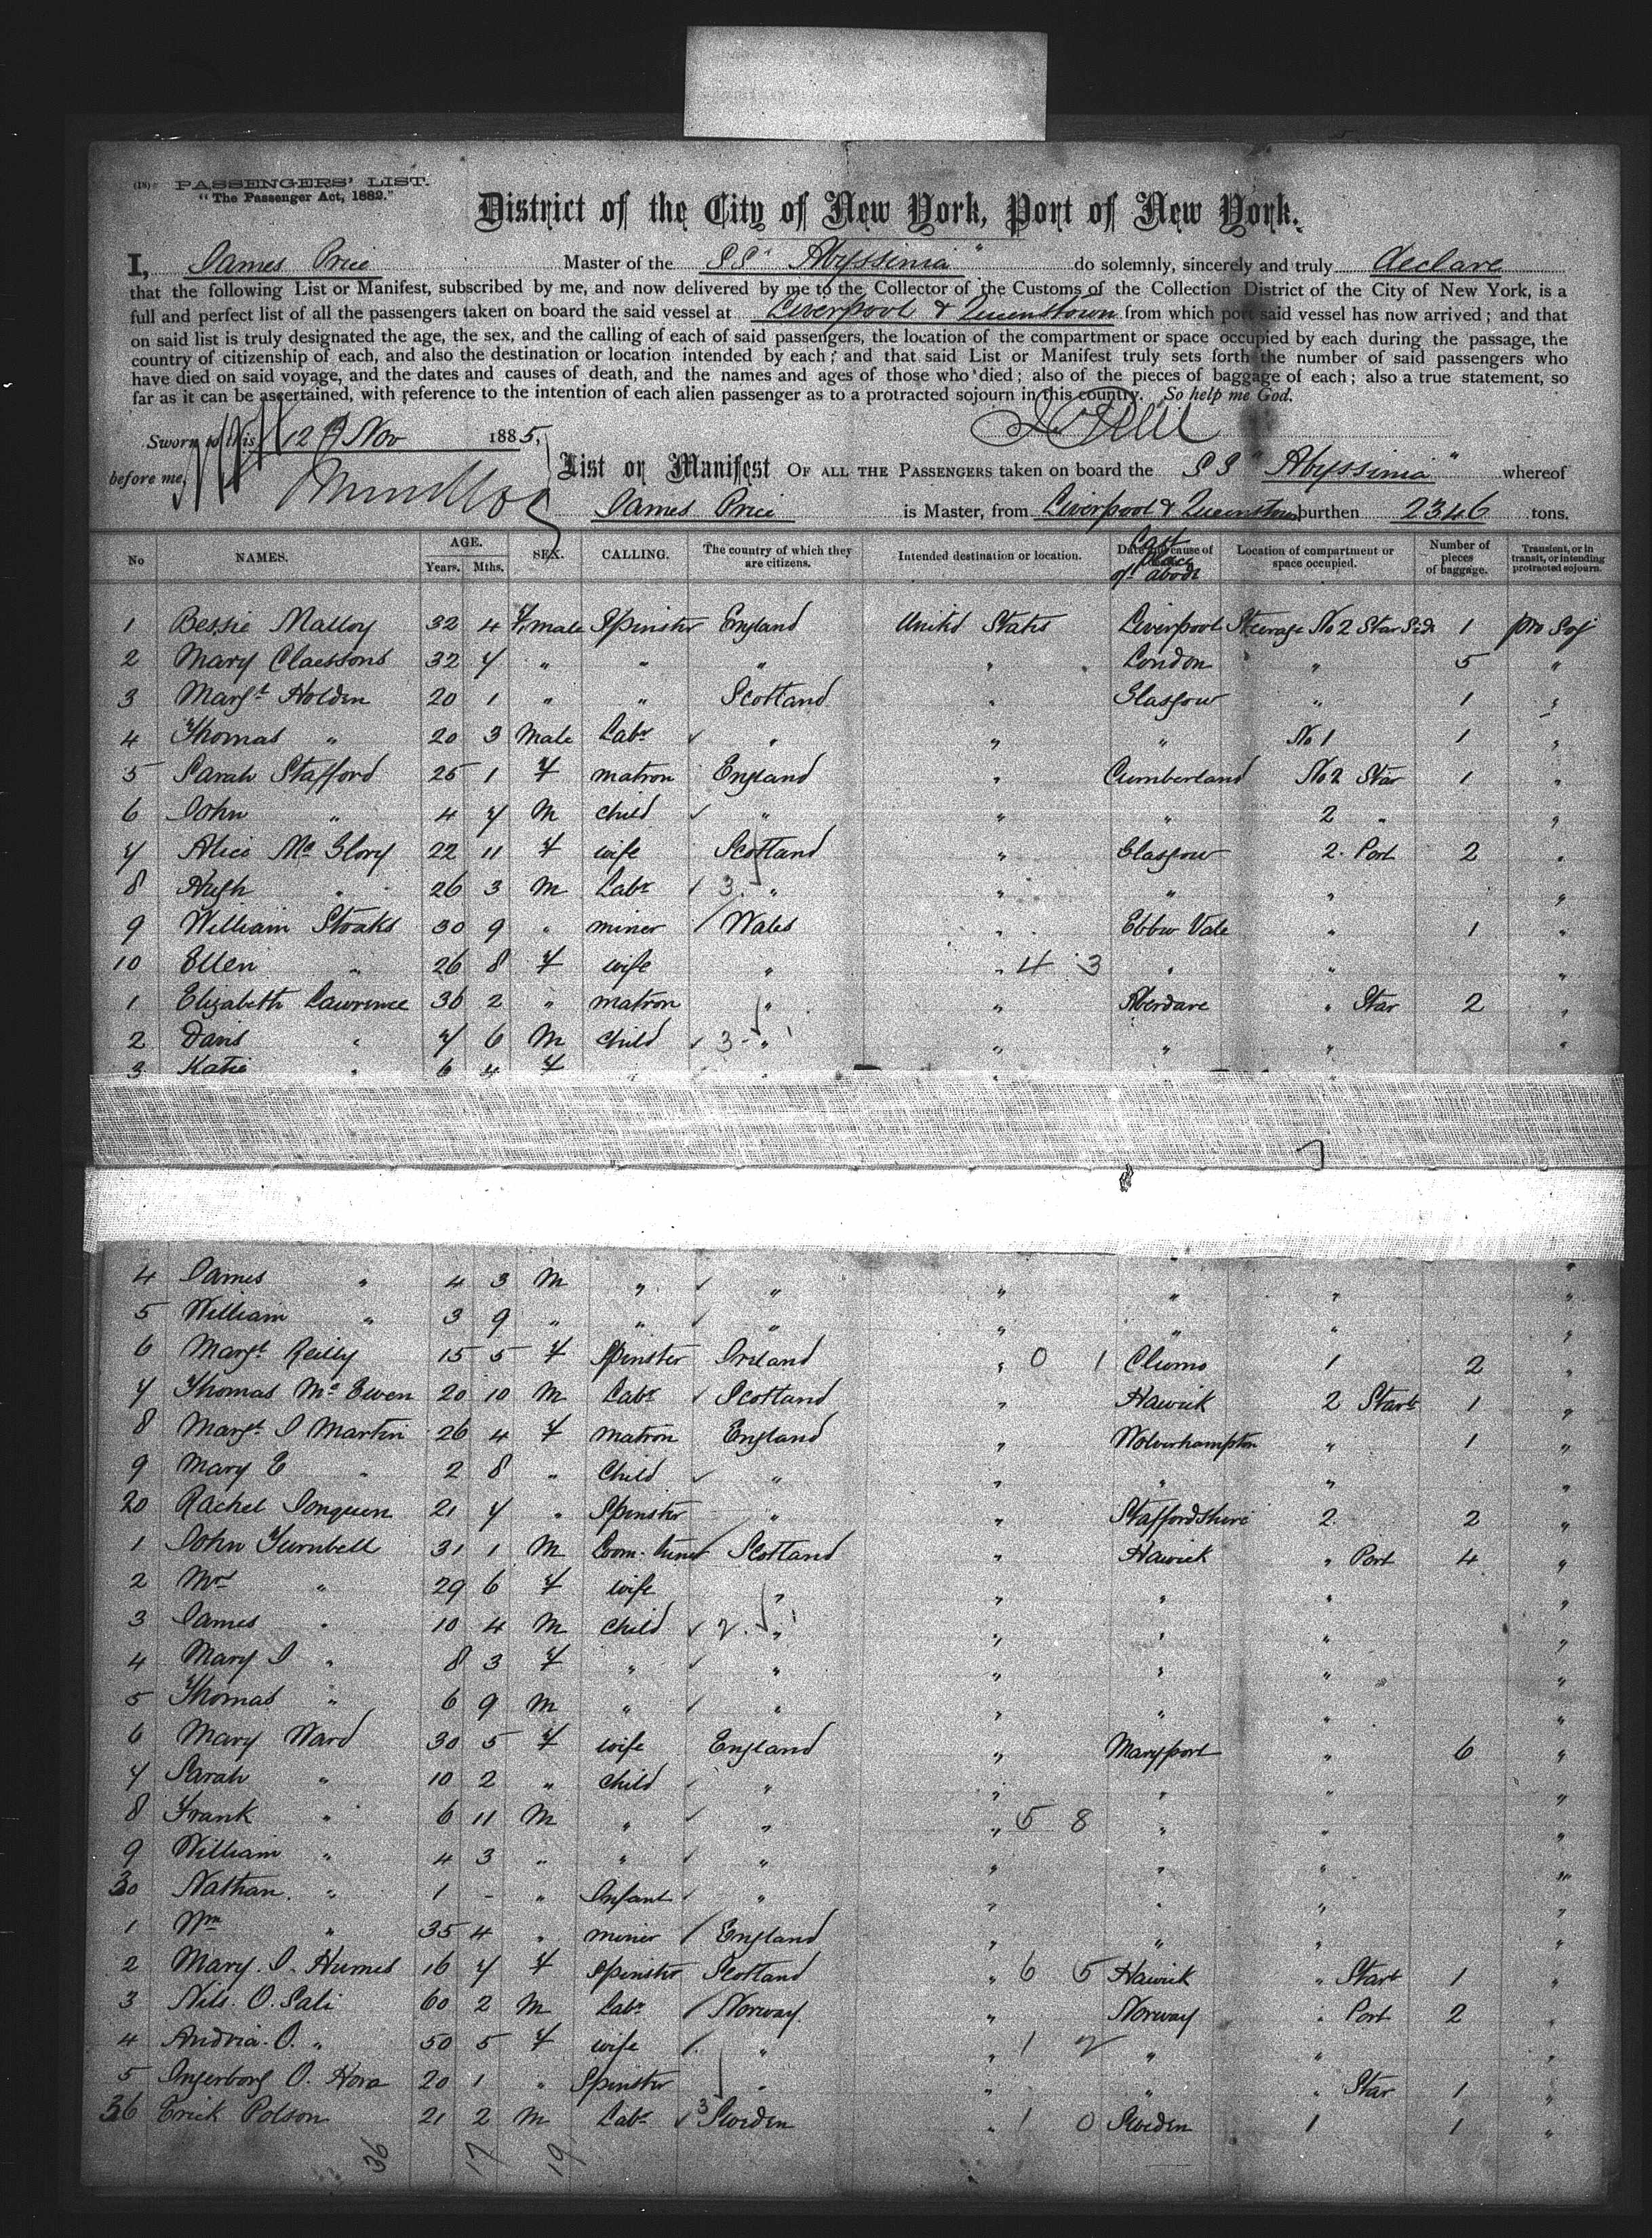 (18) PASSENGERS' LIST.
"The Passenger Act, 1882."
District of the City of New York, Port of New York.
I, James Price Master of the SS "Abyssinia" do solemnly, sincerely and truly declare
that the following List or Manifest, subscribed by me, and now delivered by me to the Collector of the Customs of the Collection District of the City of New York, is a
full and perfect list of all the passengers taken on board the said vessel at Liverpool & Queenstown from which port said vessel has now arrived; and that
on said list is truly designated the age, the sex, and the calling of each of said passengers, the location of the compartment or space occupied by each during the passage, the
country of citizenship of each, and also the destination or location intended by each; and that said List or Manifest truly sets forth the number of said passengers who
have died on said voyage, and the dates and causes of death, and the names and ages of those who died; also of the pieces of baggage of each; also a true statement, so
far as it can be ascertained, with reference to the intention of each alien passenger as to a protracted sojourn in this country. So help me God.
Sworn to this 12 Nov 1885,
before me,
List or Manifest OF ALL THE PASSENGERS taken on board the SS "Abyssinia" whereof
James Price is Master, from Liverpool & Queenstown burthen 2346 tons.
No NAMES. AGE. Years. Mths. SEX. CALLING. The country of which they are citizens. Intended destination or location. Date and cause of Last Place of abode Location of compartment or space occupied. Number of pieces of baggage. Transient, or in transit, or intending protracted sojourn.
1 Bessie Malloy 32 4 Female Spinster England United States Liverpool Steerage No 2 Star Side 1 pro Soj
2 Mary Claessons 32 7 " " " " London " 5 "
3 Margt Holden 20 1 " " Scotland " Glasgow " 1 "
4 Thomas " 20 3 Male Labr " " " No 1 1 "
5 Sarah Stafford 25 1 F matron England " Cumberland No 2 Star 1 "
6 John " 4 7 M child " " " 2 " "
7 Alice McGlory 22 11 F wife Scotland " Glasgow 2 Port 2 "
8 Hugh " 26 3 M Labr 3 " " " " "
9 William Stoaks 30 9 " miner Wales " Ebbw Vale " 1 "
10 Ellen " 26 8 F wife " " 4 3 " " "
1 Elizabeth Lawrence 36 2 " matron " " Aberdare " Star 2 "
2 Davis " 7 6 M child 3 " " " " "
3 Katie " 6 4 F
4 James " 4 3 M " " " " " "
5 William " 3 9 " " " " " " "
6 Margt Reilly 15 5 F Spinster Ireland " 0 1 Clumo 1 2 "
7 Thomas McEwen 20 10 M Labr Scotland " Hawick 2 Starb 1 "
8 Margt J Martin 26 4 F matron England " Wolverhampton " 1 "
9 Mary E " 2 8 " Child " " " " "
20 Rachel Jonquen 21 7 " Spinster " " Staffordshire 2 2 "
1 John Turnbell 31 1 M Scotland " Hawick " Port 4 "
2 Mrs " 29 6 F wife " " " " "
3 James " 10 4 M child 2 " " " " "
4 Mary J " 8 3 F " " " " " "
5 Thomas " 6 9 M " " " " " "
6 Mary Ward 30 5 F wife England " Maryport " 6 "
7 Sarah " 10 2 " child " " " " "
8 Frank " 6 11 M " " " 5 8 " " "
9 William " 4 3 " " " " " " "
30 Nathan " 1 - " Infant " " " " "
1 Wm " 35 4 " miner England " " " "
2 Mary J. Humes 16 7 F Spinster Scotland " 6 5 Hawick " Starb 1 "
3 Nils O. Sali 60 2 M Labr Norway " Norway " Port 2 "
4 Andria O. " 50 5 F wife " " 1 2 " " "
5 Ingerborg O. Hora 20 1 " Spinster " " " " Star 1 "
36 Erick Polson 21 2 M Labr 3 Sweden " 1 0 Sweden 1 1 "
36 17 19